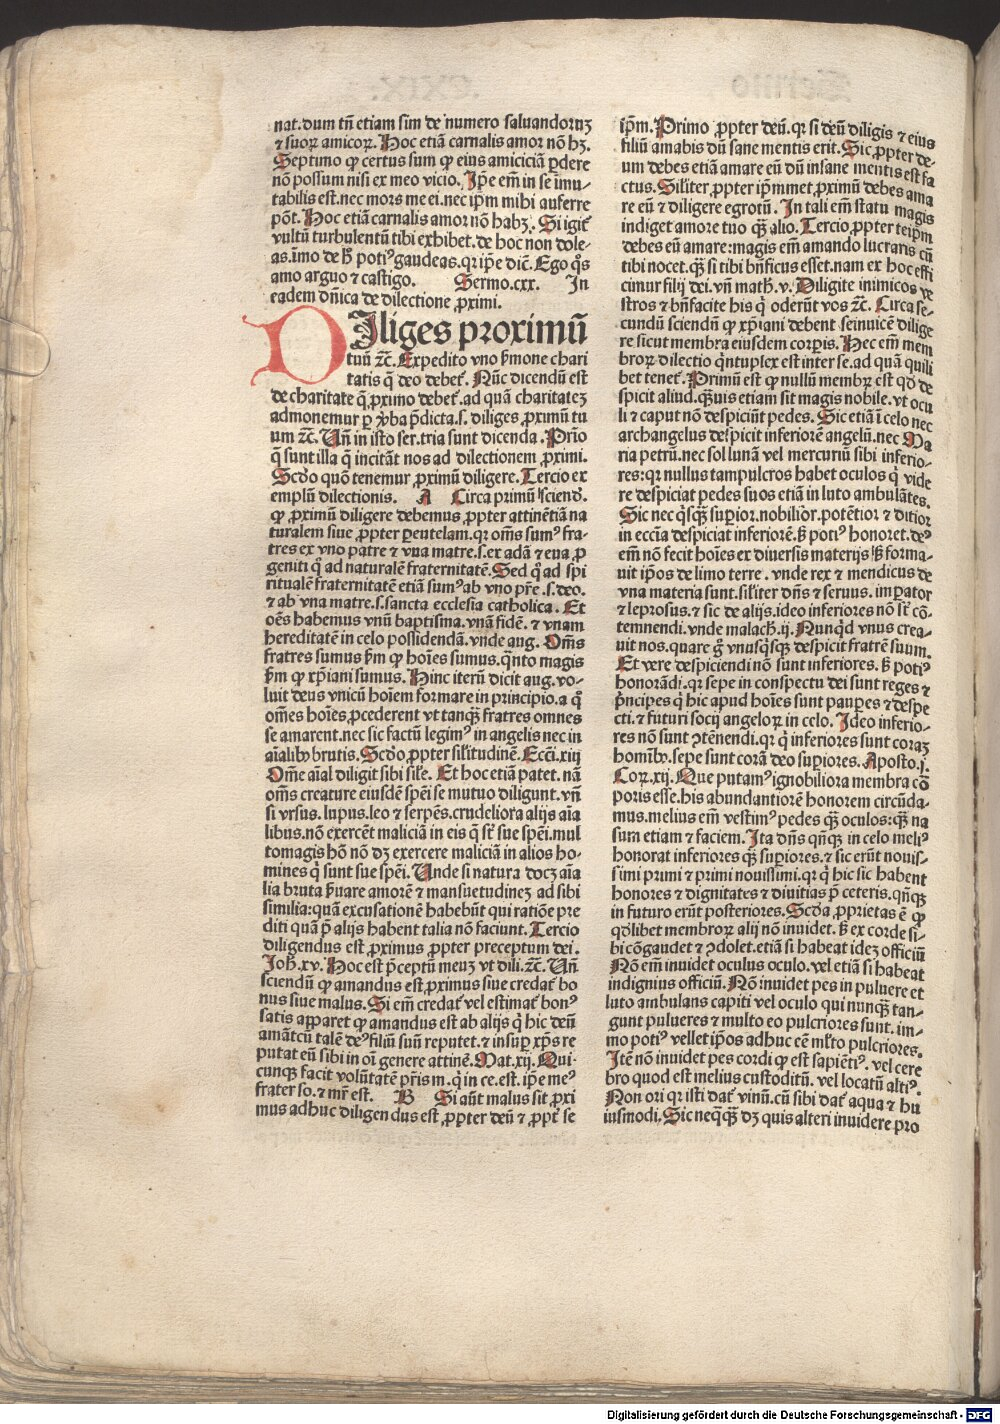 nat.dum tñ etiam sim de numero saluandorūꝫ
⁊ suoꝝ amicoꝝ. Hoc etiā carnalis amor nō hꝫ.
Septimo ꝙ certus sum ꝙ eius amiciciā ꝑdere
nō possum nisi ex meo vicio. Ip̄e em̄ in se īmu-
tabilis est.nec mors me ei.nec ip̄m mihi auferre
pōt. Hoc etiā carnalis amor nō habꝫ. Si igit᷑
vultū turbulentū tibi exhibet.de hoc non dole-
as.īmo de hͦ potiꝰ gaudeas.qꝛ ip̄e dic̄. Ego q̄s
amo arguo ⁊ castigo. Sermo.cxx. In
eadem dn̄ica de dilectione ꝓximi.
DIliges proximū
tuū ⁊c̄. Expedito vno ẜmone chari
tatis q̄ deo debet᷑. Nūc dicendū est
de charitate q̄ ꝓximo debet᷑. ad quā charitateꝫ
admonemur ꝑ v̓ba p̄dicta.s. diliges ꝓximū tu
um ⁊c̄. Un̄ in isto ser.tria sunt dicenda. Prīo
q̄ sunt illa q̄ incitāt nos ad dilectionem ꝓximi.
Scd̓o quō tenemur ꝓximū diligere. Tercio ex
emplū dilectionis. A Circa primū sciend̓.
ꝙ ꝓximū diligere debemus ꝓpter attinētiā na
turalem siue ꝓpter ꝑentelam.qꝛ om̄s sumꝰ fra-
tres ex vno patre ⁊ vna matre.s.ex adā ⁊ eua ꝓ
geniti q̄ ad naturalē fraternitatē. Sed q̄ ad spi
ritualē fraternitatē etiā sumꝰ ab vno pr̄e .s.deo.
⁊ ab vna matre.s.sancta ecclesia catholica. Et
oēs habemus vnū baptisma. vnā fidē. ⁊ vnam
hereditatē in celo possidendā.vnde aug. Om̄s
fratres sumus ẜm ꝙ hoīes sumus.q̄nto magis
ẜm ꝙ xp̄iani sumus. Hinc iterū dicit aug.vo-
luit deus vnicū hoīem formare in principio.a q̄
om̄es hoīes ꝓcederent vt tanqꝫ fratres omnes
se amarent.nec sic factū legimꝰ in angelis nec in
aīalibꝰ brutis. Scd̓o ꝓpter sil̓itudinē. Ecc̄i.xiij
Om̄e aīal diligit sibi sil̓e. Et hoc etiā patet. nā
om̄s creature eiusdē sp̄ei se mutuo diligunt. vn̄
si vrsus. lupus.leo ⁊ serpēs.crudeliora alijs aīa
libus.nō exercēt maliciā in eis q̄ st̄ sue sp̄ei.mul
tomagis hō nō dꝫ exercere maliciā in alios ho-
mines q̄ sunt sue sp̄ei. Unde si natura docꝫ aīa
lia bruta ẜuare amorē ⁊ mansuetudineꝫ ad sibi
similia:quā excusationē habebūt qui ratiōe pre
diti quā p̄ alijs habent talia nō faciunt. Tercio
diligendus est ꝓximus ꝓpter preceptum dei.
Joh̄.xv. Hoc est p̄ceptū meuꝫ vt dili.⁊c̄. Un̄
sciendū ꝙ amandus est ꝓximus siue credat᷑ bo
nus siue malus. Si em̄ credat᷑ vel estimat᷑ bonꝰ
satis apparet ꝙ amandus est ab alijs q̄ hic deū
amātcū talē deꝰ filiū suū reputet.⁊ insuꝑ xp̄s re
putat eū sibi in oī genere attinē. Mat.xij. Qui-
cunqꝫ facit volūtatē pr̄is m.q̄ in ce.est. ip̄e meꝰ
frater so.⁊ mr̄ est. B Si aūt malus sit ꝓxi
mus adhuc diligendus est ꝓpter deū ⁊ ꝓpt̄ se
ip̄m. Primo ꝓpter deū. qꝛ si deū diligis ⁊ eius
filiū amabis dū sane mentis erit. Sic ꝓpter de-
um debes etiā amare eū dū insane mentis est fa
ctus. Sil̓iter ꝓpter ip̄mmet ꝓximū debes ama
re eū ⁊ diligere egrotū. In tali em̄ statu magis
indiget amore tuo qꝫ alio. Tercio ꝓpter teip̄m
debes eū amare:magis em̄ amando lucraris cū
tibi nocet.qꝫ si tibi bn̄ficus esset.nam ex hoc effi
cimur filij dei.vn̄ math̄.v. Diligite inimicos ve
stros ⁊ bn̄facite his q̄ oderūt vos ⁊c̄. Circa se-
cundū sciendū ꝙ xp̄iani debent seinuicē dilige
re sicut membra eiusdem corꝑis. Hec em̄ mem
broꝝ dilectio q̄ntuplex est inter se.ad quā quili
bet tenet᷑. Primū est ꝙ nullū membꝝ est qd̓ de
spicit aliud.qꝫuis etiam sit magis nobile.vt ocu
li ⁊ caput nō despiciūt pedes. Sic etiā ī celo nec
archangelus despicit inferiorē angelū.nec Ma
ria petrū.nec sol lunā vel mercuriū sibi inferio-
res:qꝛ nullus tampulcros habet oculos q̄ vide
re despiciat pedes suos etiā in luto ambulātes.
Sic nec q̄sqꝫ suꝑior.nobilior.potētior ⁊ ditior
in eccīa despiciat inferiorē.ẜ potiꝰ honoret.deꝰ
em̄ nō fecit hoīes ex diuersis materijs ẜ forma-
uit ip̄os de limo terre . vnde rex ⁊ mendicus de
vna materia sunt.sil̓iter dn̄s ⁊ seruus. imꝑator
⁊ leprosus.⁊ sic de alijs.ideo inferiores nō st̄ cō-
temnendi.vnde malach̄.ij. Nunqd̓ vnus crea-
uit nos.quare g̊ vnusq̄sqꝫ despicit fratrē suum.
Et vere despiciendi nō sunt inferiores. ẜ potiꝰ
honorādi.qꝛ sepe in conspectu dei sunt reges ⁊
p̄ncipes q̄ hic apud hoīes sunt pauꝑes ⁊ despe
cti.⁊ futuri socij angeloꝝ in celo. Ideo inferio-
res nō sunt ꝯtēnendi.qꝛ q̄ inferiores sunt coraꝫ
homībꝰ.sepe sunt corā deo suꝑiores. Aposto.j.
Coꝝ.xij. Que putamꝰ ignobiliora membra cō
poris esse.his abundantiorē honorem circūda-
mus.melius em̄ vestimꝰ pedes qꝫ oculos:qꝫ na
sum etiam ⁊ faciem. Ita dn̄s qn̄qꝫ in celo meliꝰ
honorat inferiores qꝫ suꝑiores.⁊ sic erūt nouis-
simi primi ⁊ primi nouissimi.qꝛ q̄ hic sic habent
honores ⁊ dignitates ⁊ diuitias p̄ ceteris.qn̄qꝫ
in futuro erūt posteriores. Scd̓a ꝓprietas ē ꝙ
qd̓libet membroꝝ alij nō inuidet. ẜ ex corde si-
bi cōgaudet ⁊ ꝯdolet.etiā si habeat ideꝫ officiū
Nō em̄ inuidet oculus oculo.vel etiā si habeat
indignius officiū. Nō inuidet pes in puluere et
luto ambulans capiti vel oculo qui nunqꝫ tan-
gunt pulueres ⁊ multo eo pulcriores sunt. im-
mo potiꝰ vellet ip̄os adhuc cē ml̓to pulcriores.
Itē nō inuidet pes cordi ꝙ est sapiētiꝰ. vel cere
bro quod est melius custoditū. vel locatū altiꝰ.
Non ori qꝛ isti dat᷑ vinū.cū sibi dat᷑ aqua ⁊ hu
iusmodi. Sic neqꝫqꝫ dꝫ quis alteri inuidere pro
Digitalisierung gefördert durch die Deutsche Forschungsgemeinschaft - DFG